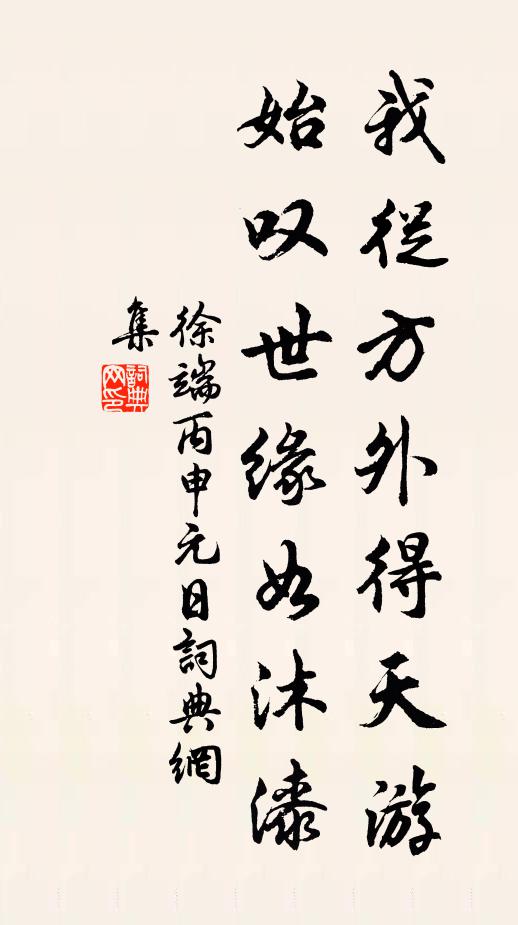 我從方外得天游
始叹世緣如沐漆
徐端丙申元日詞典網
集
詞典網印